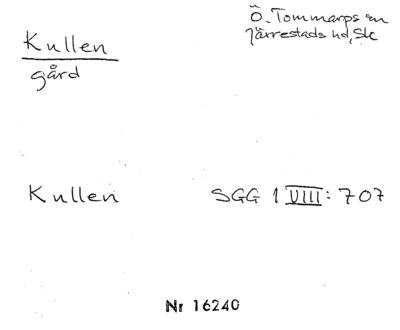 Kullen
gård
Ö. Tommarps sn
Järrestads hd, Sk
Kullen SGG 1 VIII: 707
Nr 16240